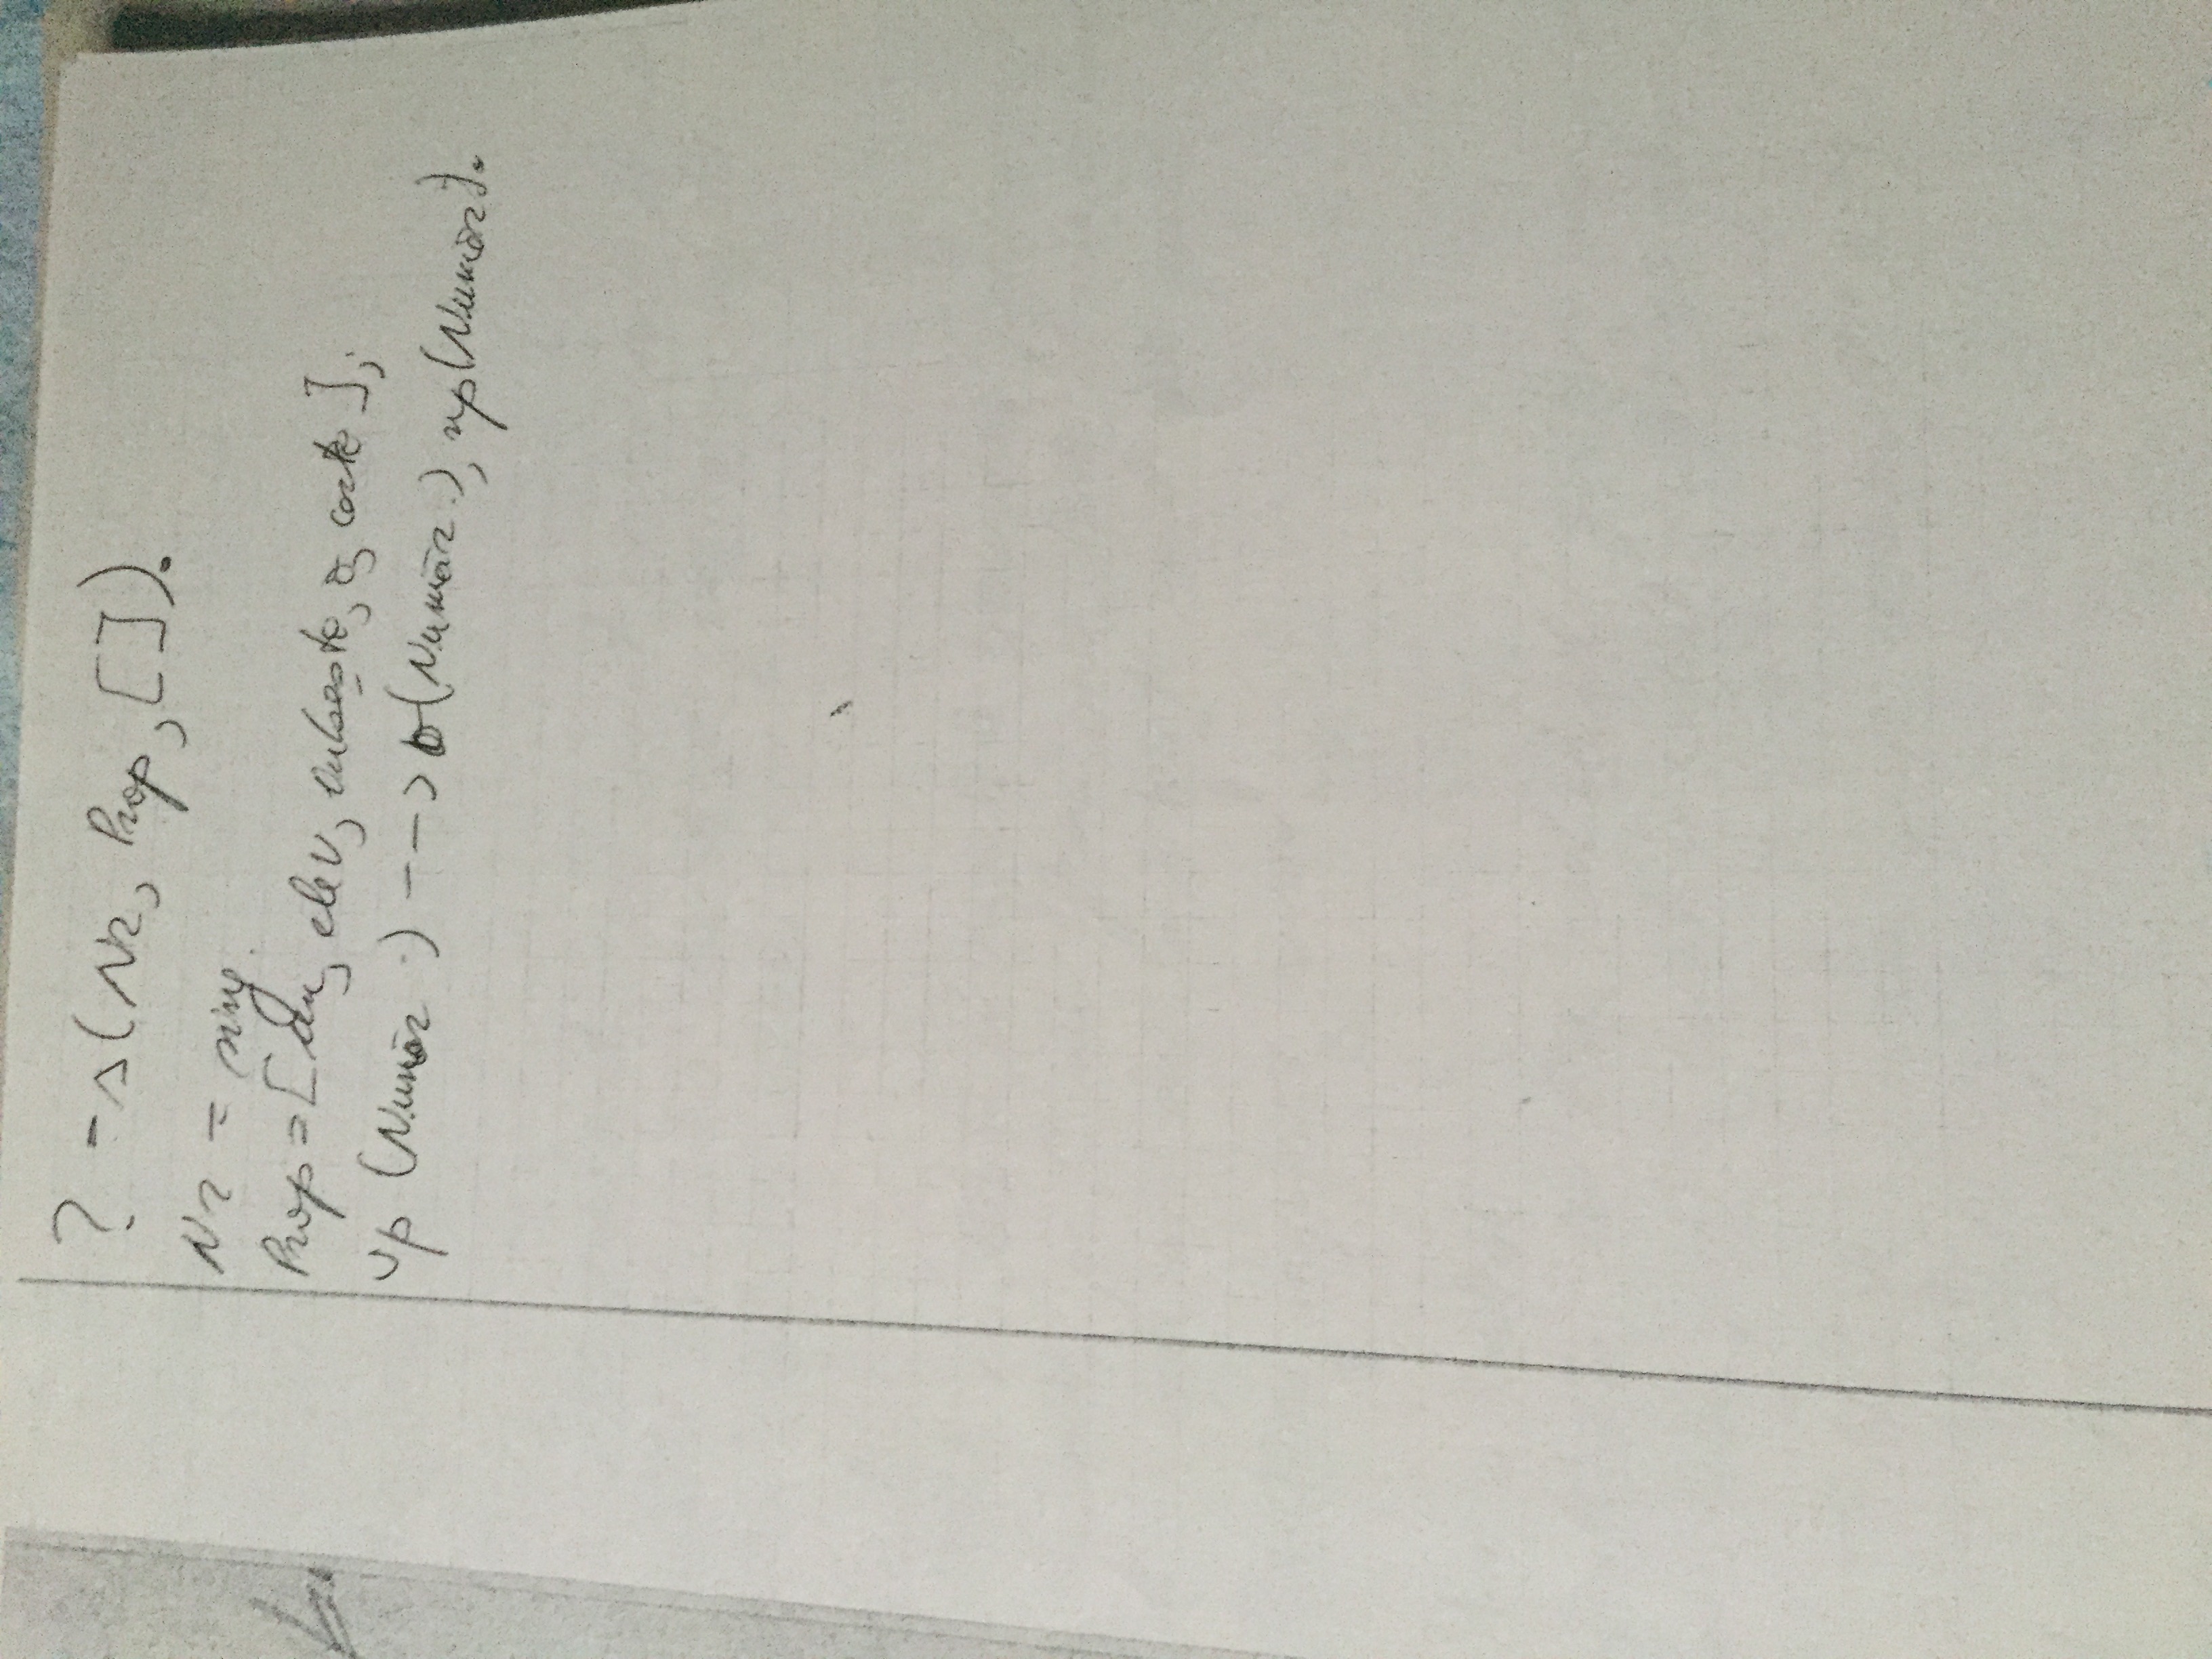 ? -s(Nr, Prop, []).
Nr = sing
Prop=[un, elev, iubește, o, carte];
vp (Număr) --> v(Număr), np(Număr).